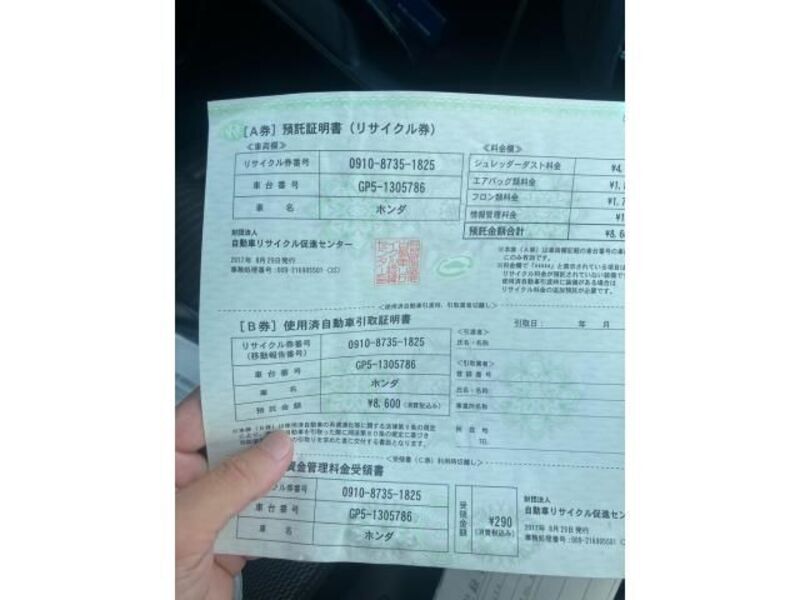 [A券] 預託証明書(リサイクル券)
<車両欄>
リサイクル券番号 0910-8735-1825
車台番号 GP5-1305786
車名 ホンダ
<料金欄>
シュレッダーダスト料金 ¥4,
エアバッグ類料金
フロン類料金
情報管理料金
預託金額合計 ¥8,6
財団法人
自動車リサイクル促進センター
2017年 8月29日発行
※本券(A券)は車両欄記載の車台番号の車
このみ有効です。
リサイクル料金が預託されていない装備で
使用済自動車引渡時に装備がある場合は
リサイクル料金の追加預託が必要です。
<使用済自動車引渡時、引取業者切離し>
[B券] 使用済自動車引取証明書
引取日: 年 月
リサイクル券番号
(移動報告番号) 0910-8735-1825
車台番号 GP5-1305786
車名 ホンダ
預託金額 ¥8,600 (消費税込み)
<引渡者>
氏名・名称
<引取業者>
登録番号
氏名・名称
事業所名称
所在地
TEL
<受領書(C券)利用時切離し>
資金管理料金受領書
クル券番号 0910-8735-1825
車台番号 GP5-1305786
車名 ホンダ
受領金額 ¥290
(消費税込み)
財団法人
自動車リサイクル促進セン
2017年 8月29日発行